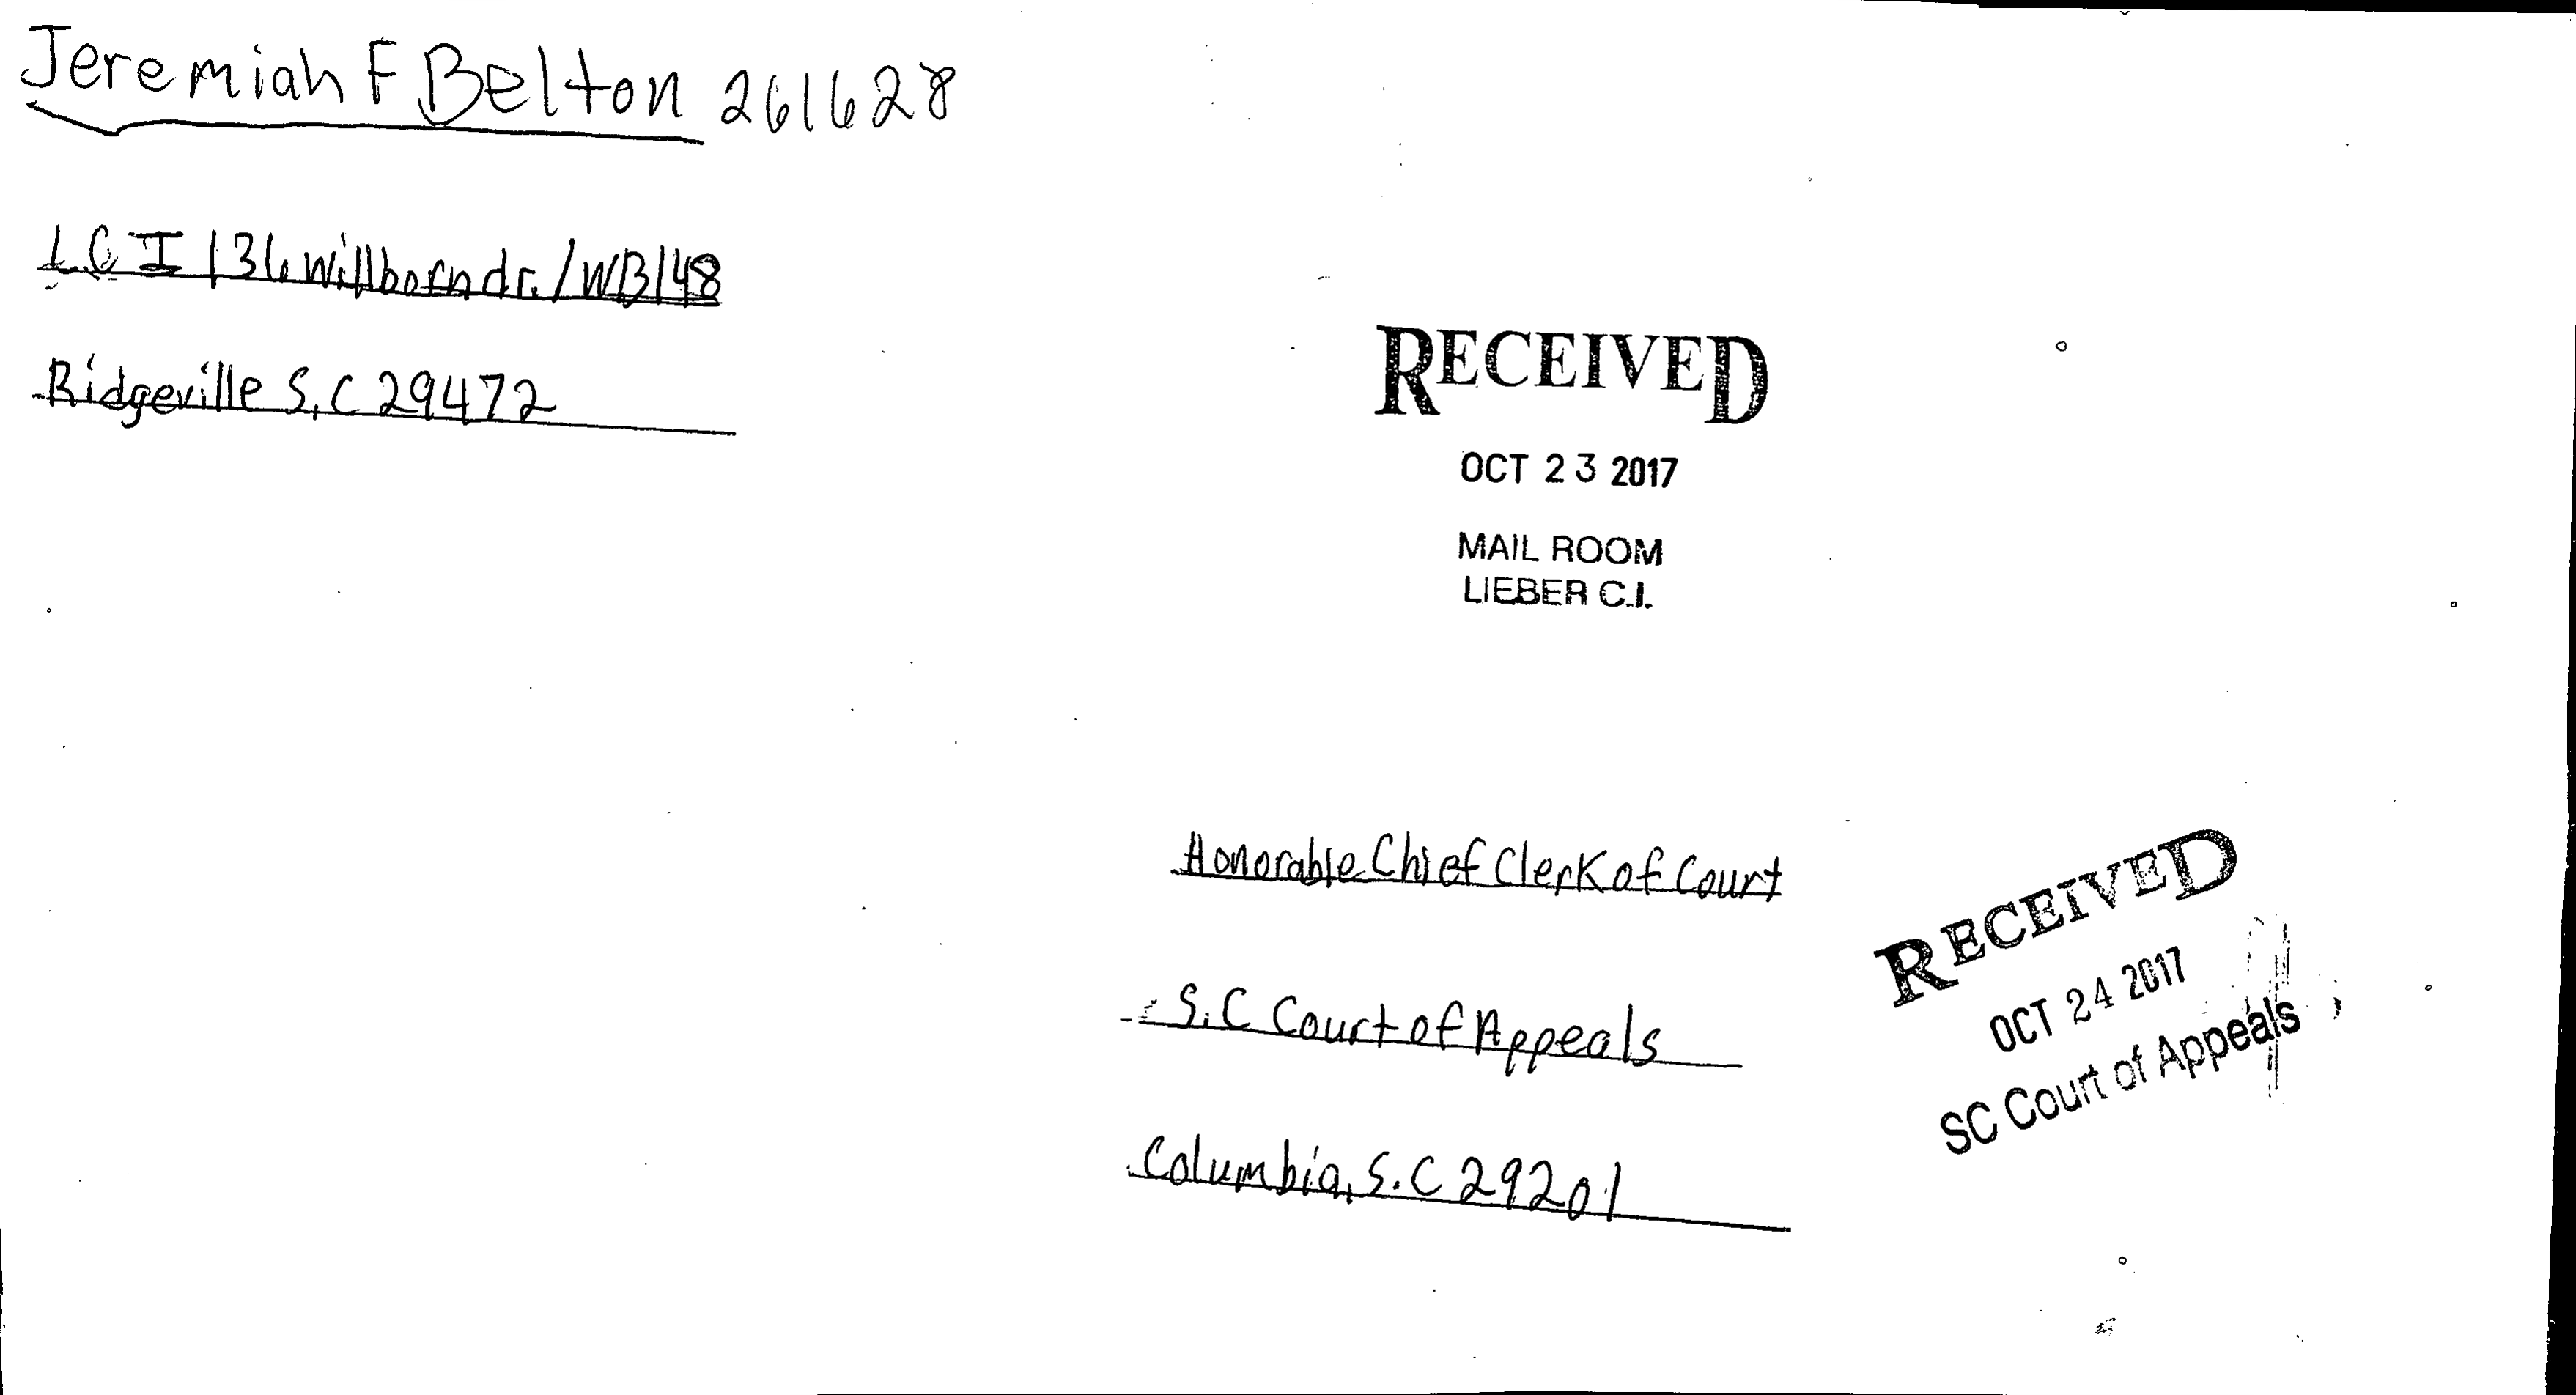 Jeremiah F Belton 261628
L C I 136 Willborn dr. / WB148
Ridgeville S.C 29472
RECEIVED
OCT 23 2017
MAIL ROOM
LIEBER C.I.
Honorable Chief Clerk of Court
S.C Court of Appeals
Columbia, S.C 29201
RECEIVED
OCT 24 2017
SC Court of Appeals